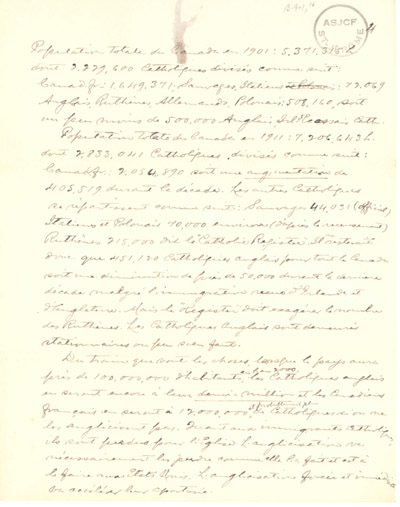 ASJCF
ST-JÉRÔME
Population totale du Canada en 1901: 5,371,315
dont 2,229,600 Catholiques divisés comme suit:
Canad. fr: 1,649,371; Sauvages, Italiens : 72,069
Anglais, Ruthènes, Allemands, Polonais: 508,160, soit
un peu moins de 500,000 Anglais, Irl. Ecossais Cath.
Population totale du Canada en 1911: 7,206,643 h.
dont 2,833,041 Catholiques, divisés comme suit:
Canad. fr.: 2,054,890 soit une augmentation de
405,519 durant la décade. Les autres Catholiques
se répartissent comme suit: Sauvages 44,021 (officiel)
Italiens et Polonais 70,000 environ (d'après le recensement)
Ruthènes 215,000 dit le Catholic Register. Il resterait
donc que 451,120 Catholiques anglais pour tout le Canada
soit une diminution de près de 50,000 durant la dernière
décade malgré l'immigration reçue d'Irlande et
d'Angleterre. Mais le Register doit exagérer le nombre
des Ruthènes. Les Catholiques anglais sont demeurés
stationnaires ou peu s'en faut.
Du train que vont les choses, lorsque le pays aura
près de 100,000,000 d'habitants, les Catholiques anglais
en l'an 2000
en seront encore à leur demi-million et les Canadiens
français en seront à 12,000,000 Catholiques si on ne
les anglicisent pas. Quant aux immigrants Catholiques
ils sont perdus pour l'Eglise. L'anglicisation va
nécessairement les perdre comme elle l'a fait et a
le faire aux Etats Unis. L'anglicisation forcée et
va accélérer leur apostasie.